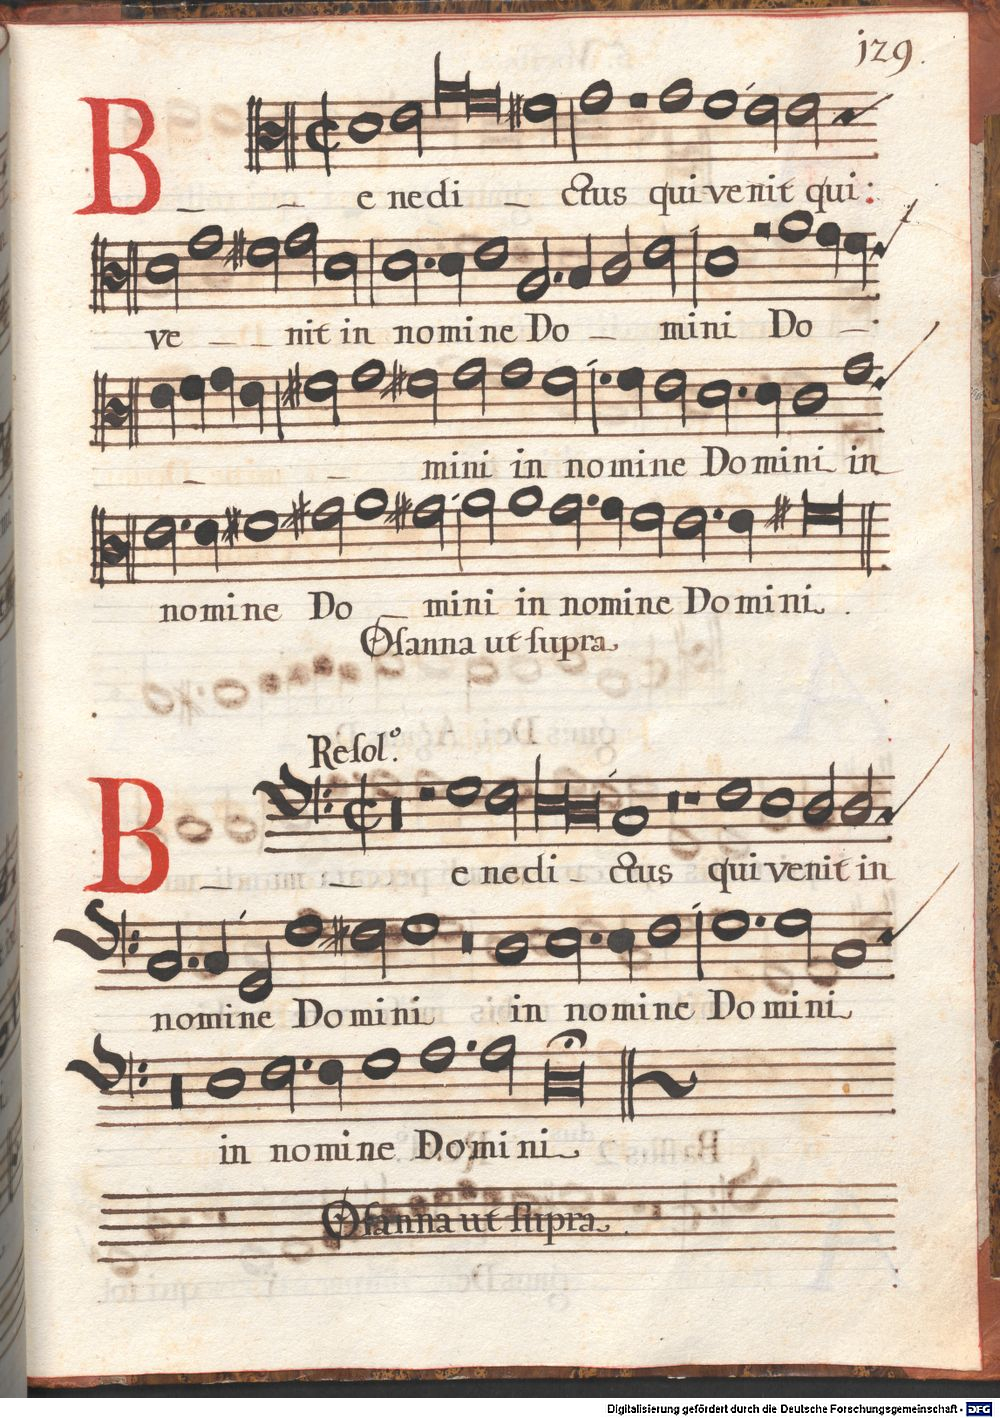 129.
B _ _ e nedi _ ctus qui venit qui:
ve _ _ nit in nomine Do _ mini Do _
_ _ mini in nomine Domini in
nomine Do _ mini in nomine Domini.
Osanna ut supra
Resol.o
B _ _ e nedi _ ctus qui venit in
nomine Domini in nomine Domini
in nomine Domini
Osanna ut supra.
Digitalisierung gefördert durch die Deutsche Forschungsgemeinschaft - DFG